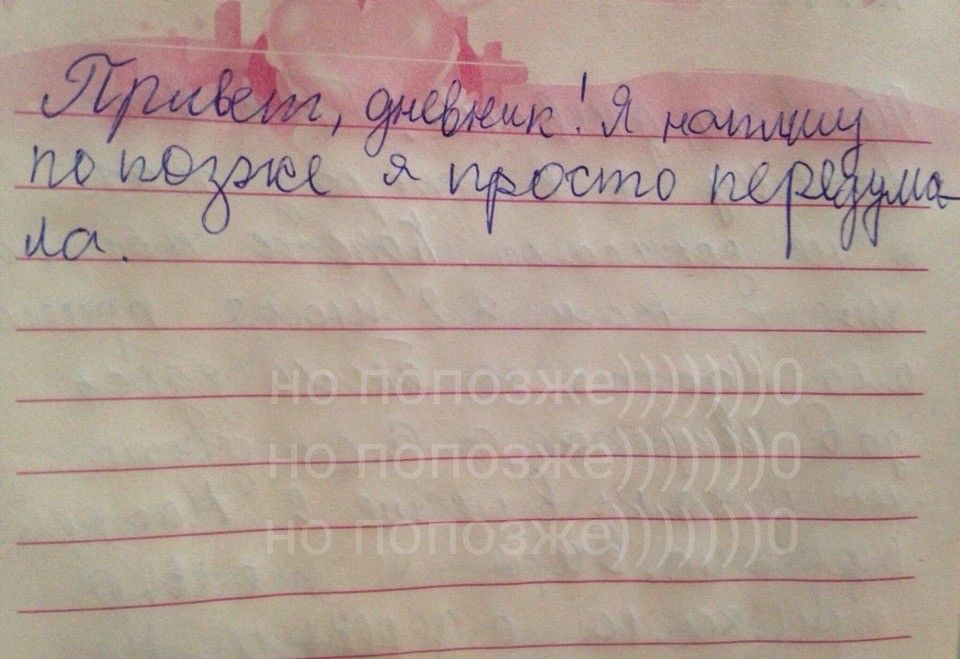 Привет, дневник! Я напишу
по позже я просто передума-
ла.
но попозже)))))))0
но попозже)))))))0
но попозже)))))))0